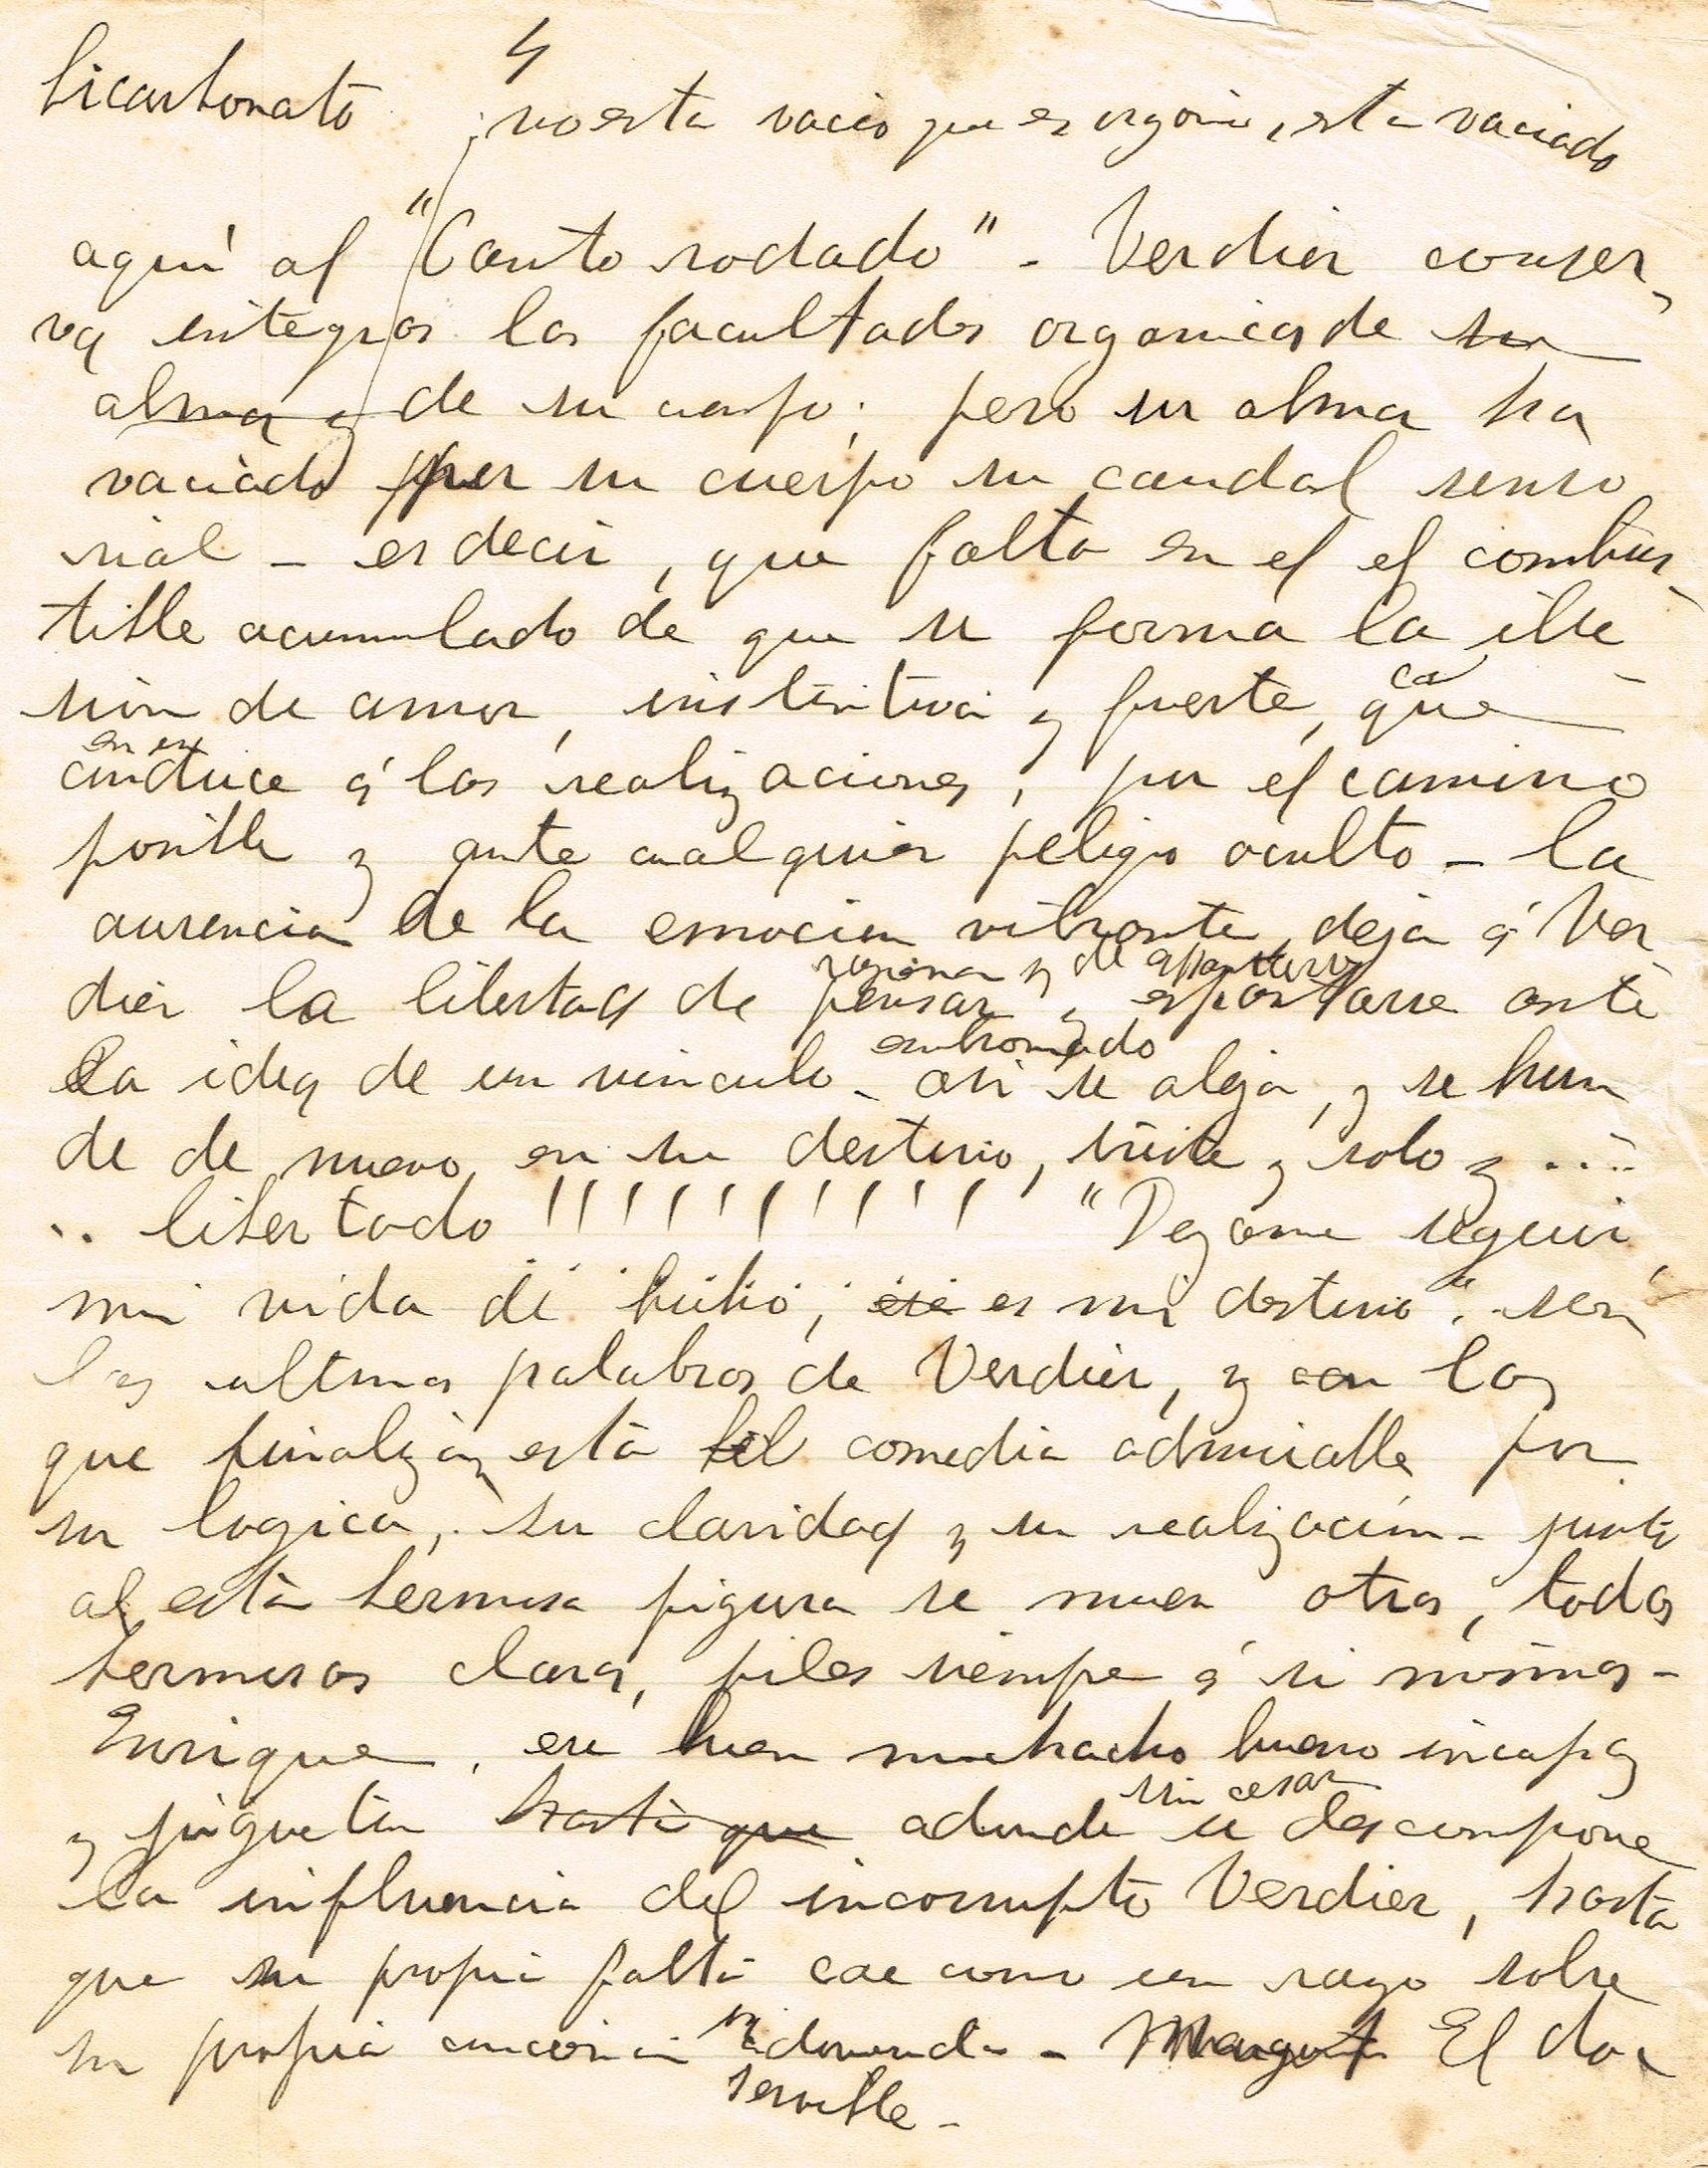 4
bicarbonato no esta vacio que es organico, esta vaciado
aquí al "Canto rodado" - Verdier conser-
va integras las facultades organicas de su
alma y de su cuerpo; pero su alma ha
vaciado por su cuerpo su caudal senso
rial - es decir, que falta en el el combus-
tible acumulado de que se forma la ilu-
ca
sión de amor, instintiva y fuerte, que
conduce á las realizaciones, por el camino
posible y ante cualquier peligro oculto - la
ausencia de la emocion vibrante, deja á Ver
razonar y de
dier la libertad de pensar y espantarse ante
ensombrado
la idea de un vinculo - asi se aleja, y se hun
de de nuevo, en su destino, triste y solo y ....
.. libertado !!!!!!!!!! "Dejame seguir
mi vida de buho; ese es mi destino". seran
las ultimas palabras de Verdier, y con las
que finaliza esta comedia admirable por
su logica, su claridad y su realizacion - junto
a esta hermosa figura se mueven otras, todas
hermosas claras, fieles siempre á si mismas -
Enrique, ese buen muchacho bueno incapaz
sin cesar
y juguetón hasta que adonde se descompone
la influencia del incorrupto Verdier, hasta
que su propia falta cae como un rayo sobre
su propia conciencia - Margot El doc